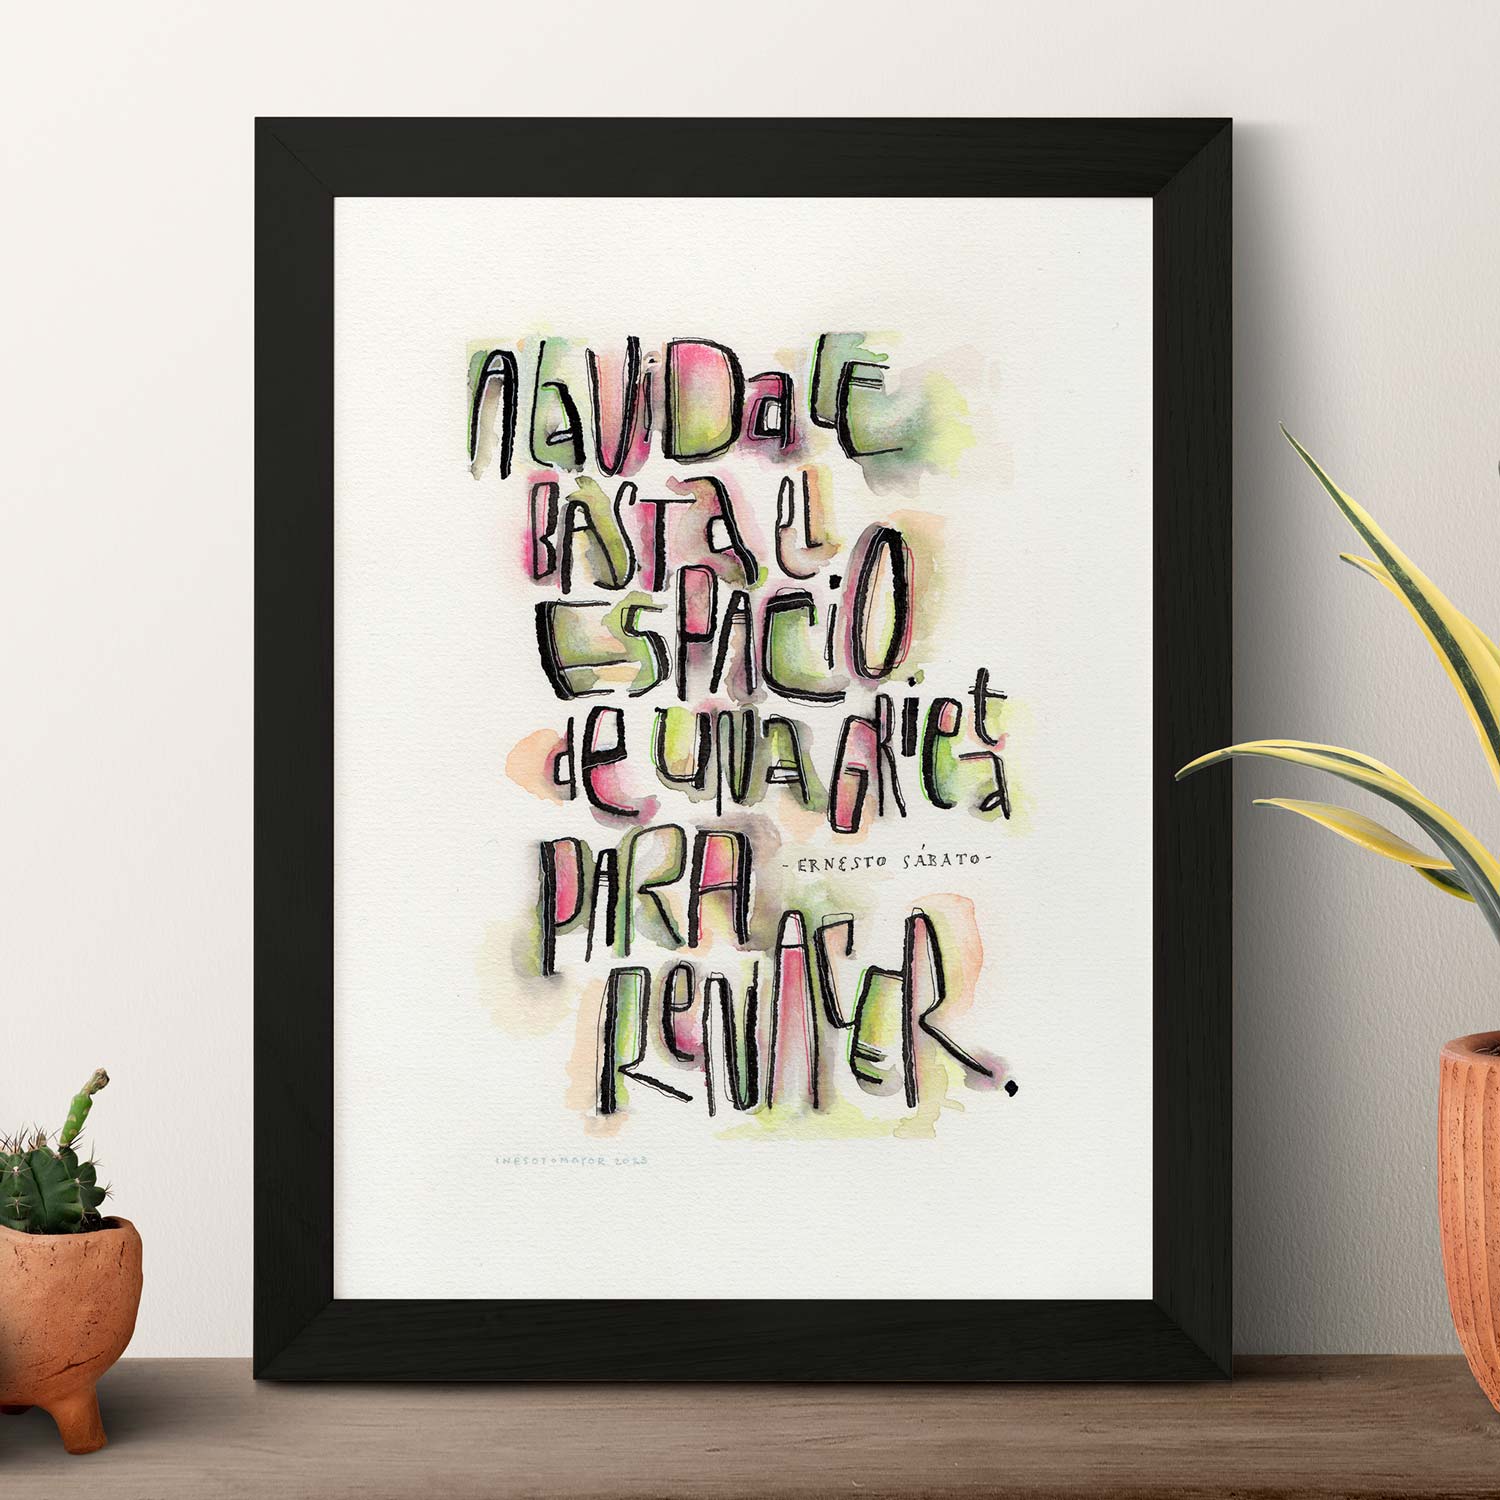 A la vida le
BASTA el
ESPACIO
de una GRIETA
PARA
- ERNESTO SÁBATO -
RENACER.
INESOTOMAYOR 2023